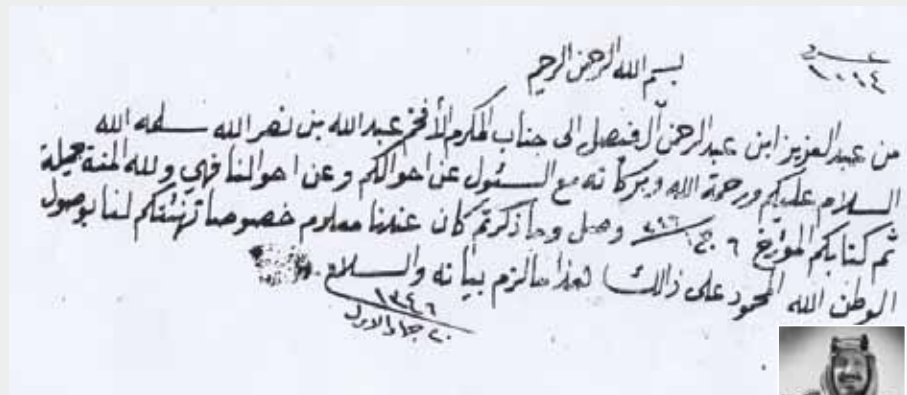 عدد
١٠٩٤
بسم الله الرحمن الرحيم
من عبد العزيز ابن عبد الرحمن آل فيصل الى جناب المكرم الأفخم عبد الله بن نصر الله سلمه الله
السلام عليكم ورحمة الله وبركاته مع السئول عن احوالكم وعن احوالنا فهي ولله المنة جميلة
ثم كتابكم المؤرخ ٦ وصل وما ذكرتم كان عندنا معلوم خصوصا تهنئتكم لنا بوصول
الوطن الله المحمود على ذالك هذا مالزم بيانه والسلام
١٣٤٦
٢٠ جماد الاول